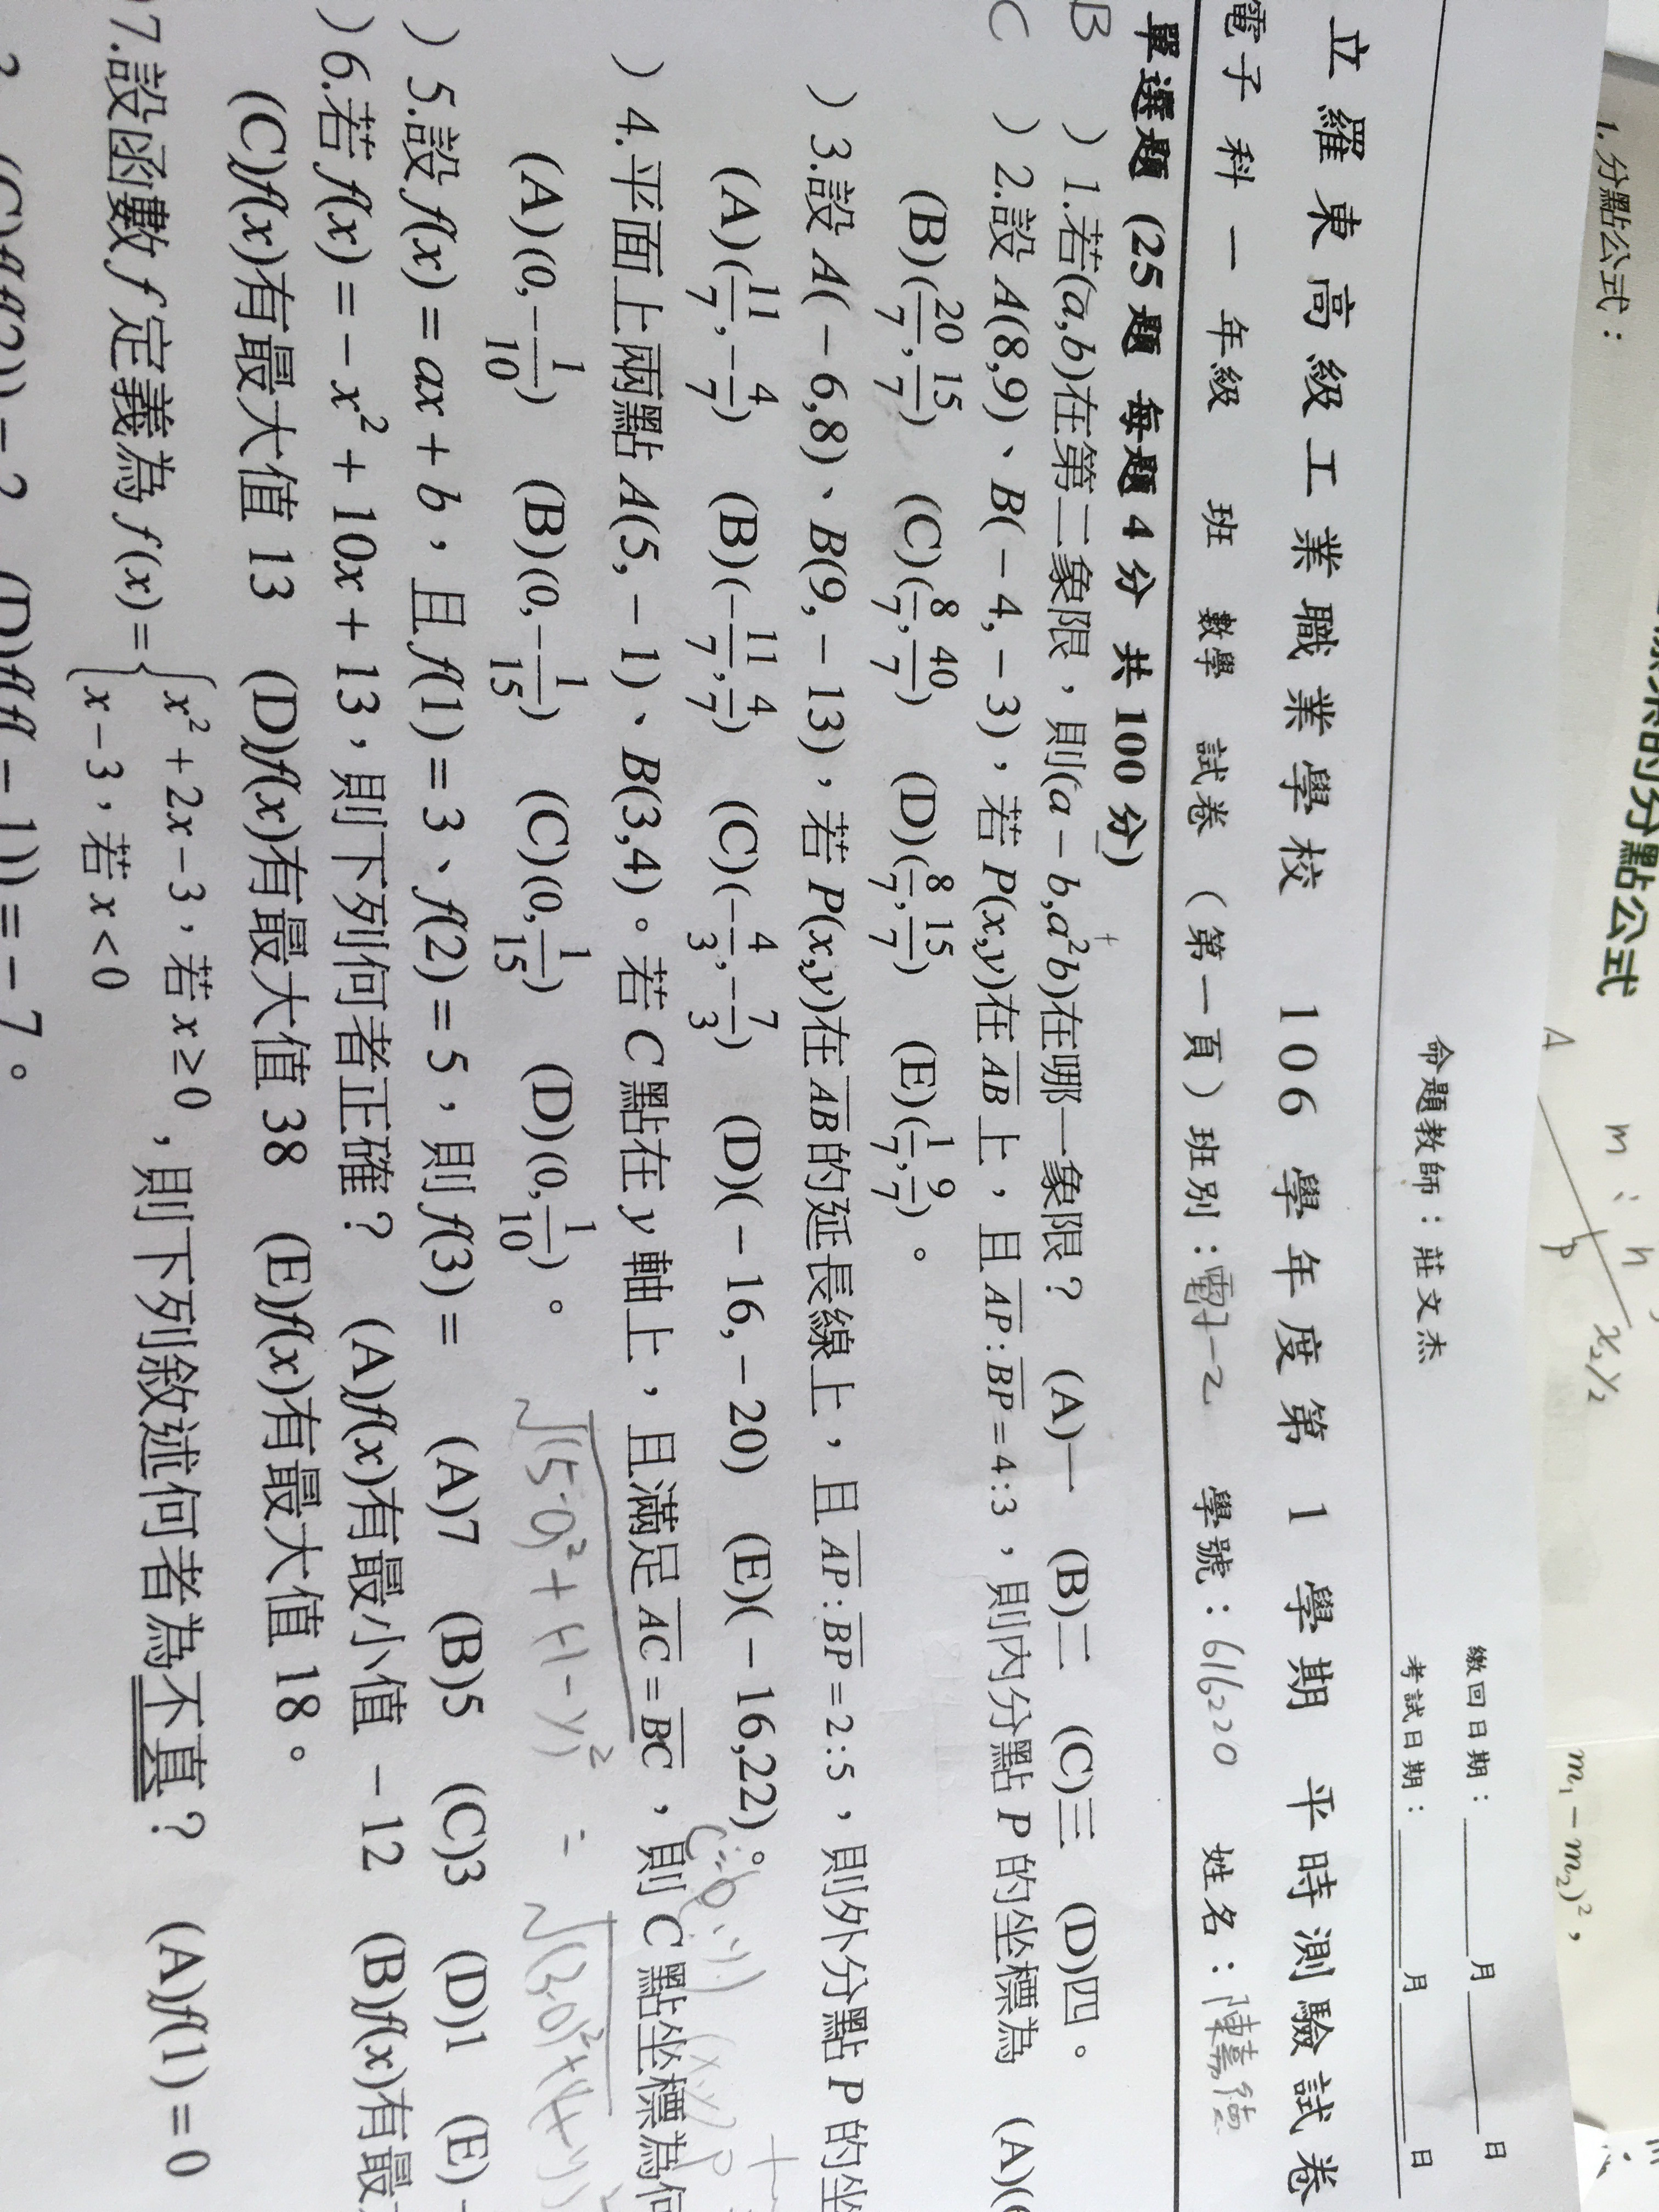 1. 分點公式：
的分點公式
A
m : n
P
x₂y₂
m₁ − m₂)²，
命題教師：莊文杰
繳回日期：______月______日
考試日期：______月______日
立羅東高級工業職業學校 106 學年度第 1 學期 平時測驗試卷
電子科一年級 班 數學 試卷（第一頁）班別：電子一乙 學號：616220 姓名：陳嘉德
單選題 (25 題 每題 4 分 共 100 分)
B ) 1.若(a,b)在第二象限，則(a − b,a²b)在哪一象限？ (A)一 (B)二 (C)三 (D)四。
C ) 2.設 A(8,9)、B( − 4, − 3)，若 P(x,y)在 AB 上，且 AP : BP = 4 : 3，則內分點 P 的坐標為 (A)(
(B)(20/7, 15/7) (C)(8/7, 40/7) (D)(8/7, 15/7) (E)(1/7, 9/7)。
) 3.設 A( − 6,8)、B(9, − 13)，若 P(x,y)在 AB 的延長線上，且 AP : BP = 2 : 5，則外分點 P 的坐
(A)(11/7, −4/7) (B)(−11/7, 4/7) (C)(−4/3, −7/3) (D)( − 16, − 20) (E)( − 16,22)。
) 4.平面上兩點 A(5, − 1)、B(3,4)。若 C 點在 y 軸上，且滿足 AC = BC，則 C 點坐標為何
(A)(0, −1/10) (B)(0, −1/15) (C)(0, 1/15) (D)(0, 1/10)。
√(5-0)² + (-1-y)² = √(3-0)² + (4-y)
) 5.設 f(x) = ax + b，且 f(1) = 3、f(2) = 5，則 f(3) = (A)7 (B)5 (C)3 (D)1 (E) −
) 6.若 f(x) = − x² + 10x + 13，則下列何者正確？ (A)f(x)有最小值 − 12 (B)f(x)有最
(C)f(x)有最大值 13 (D)f(x)有最大值 38 (E)f(x)有最大值 18。
7.設函數 f 定義為 f(x) = { x² + 2x − 3，若 x ≥ 0
x − 3，若 x < 0 ，則下列敘述何者為不真？ (A)f(1) = 0
(C)f(f(2)) = 2 (D)f(f( − 1)) = − 7。